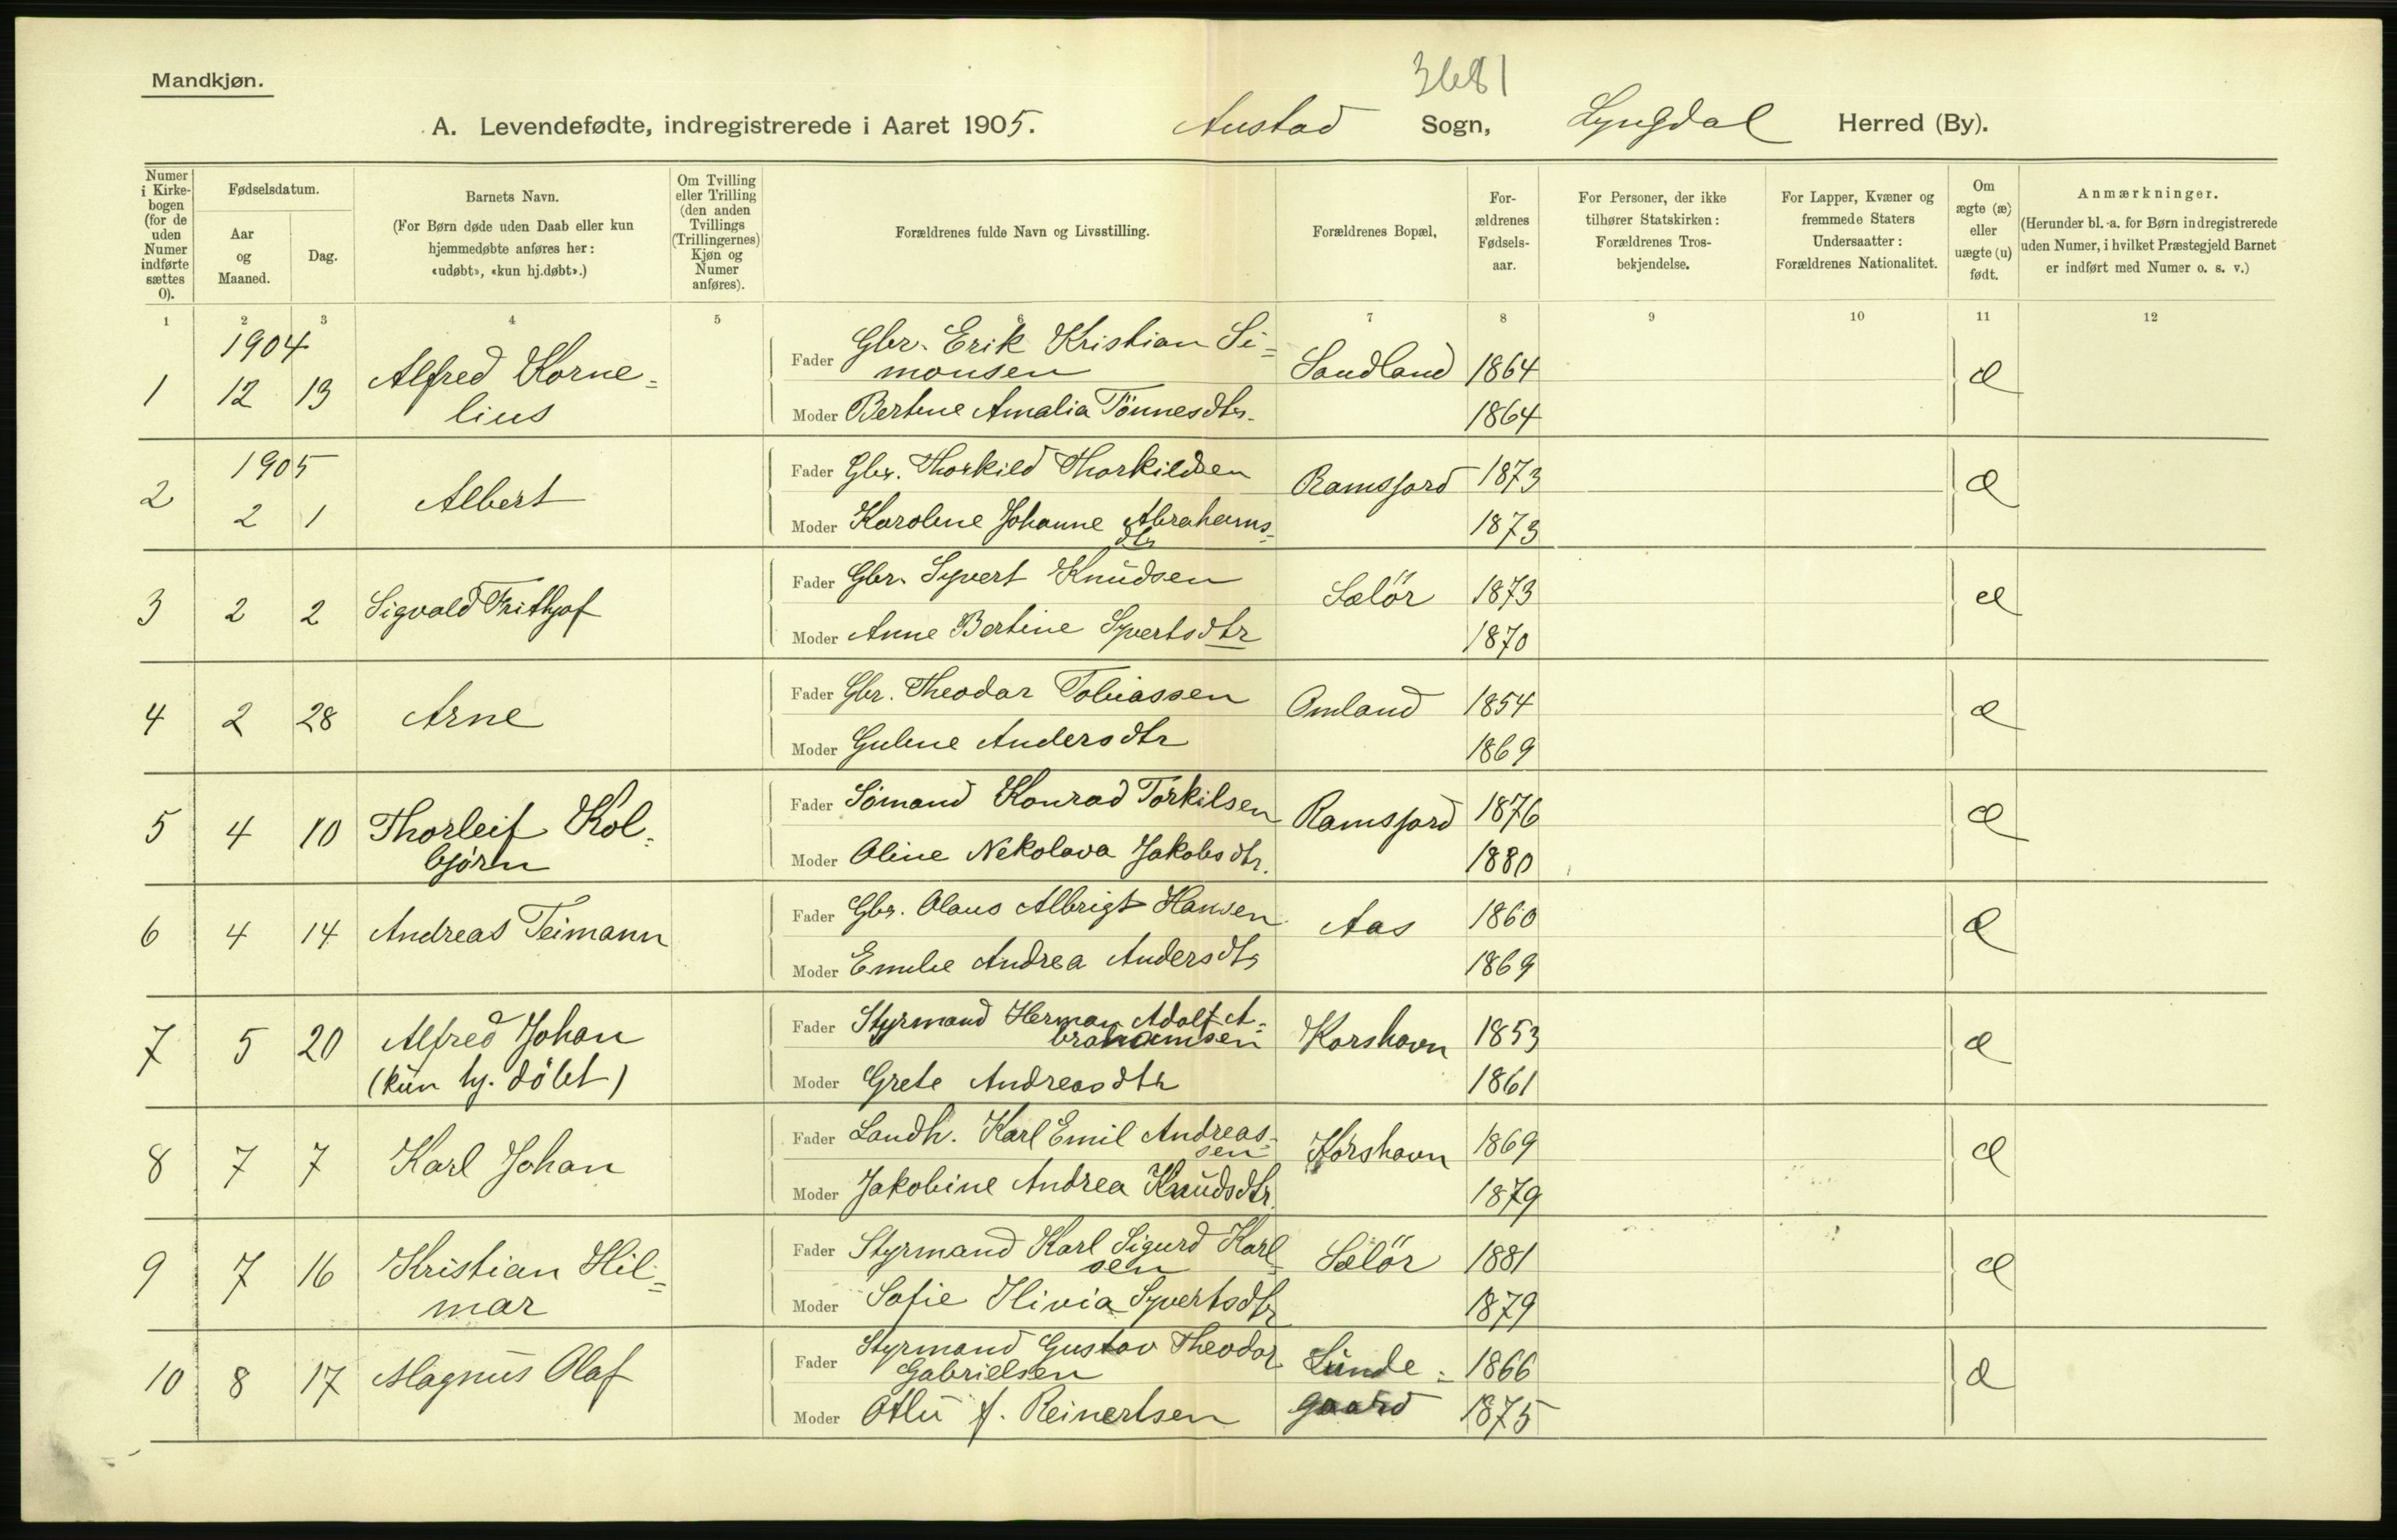 3681
Mandkjøn.
A. Levendefødte, indregistrerede i Aaret 1905. Austad Sogn, Lyngdal Herred (By).
Numer i Kirkebogen (for de uden Numer indførte sættes 0).
Fødselsdatum.
Aar og Maaned.
Dag.
Barnets Navn.
(For Børn døde uden Daab eller kun hjemmedøbte anføres her: «udøbt», «kun hj.døbt».)
Om Tvilling eller Trilling (den anden Tvillings (Trillingernes) Kjøn og Numer anføres).
Forældrenes fulde Navn og Livsstilling.
Forældrenes Bopæl,
Forældrenes Fødselsaar.
For Personer, der ikke tilhører Statskirken: Forældrenes Trosbekjendelse.
For Lapper, Kvæner og fremmede Staters Undersaatter: Forældrenes Nationalitet.
Om ægte (æ) eller uægte (u) født.
Anmærkninger.
(Herunder bl. a. for Børn indregistrerede uden Numer, i hvilket Præstegjeld Barnet er indført med Numer o. s. v.)
1 2 3 4 5 6 7 8 9 10 11 12
1904
1 12 13 Alfred Kornelius
Fader Gbr. Erik Kristian Simonsen Sandland 1864 æ
Moder Bertine Amalia Tönnesdtr. 1864
1905
2 2 1 Albert
Fader Gbr. Thorkild Thorkildsen Ramsfjord 1873 æ
Moder Karoline Johanne Abrahamsdtr 1873
3 2 2 Sigvald Frithjof
Fader Gbr. Syvert Knudsen Selör 1873 æ
Moder Anne Bertine Syvertsdtr 1870
4 2 28 Arne
Fader Gbr. Theodor Tobiassen Omland 1854 æ
Moder Guline Andersdtr 1869
5 4 10 Thorleif Kolbjörn
Fader Sömand Konrad Torkilsen Ramsfjord 1876 æ
Moder Oline Nekolava Jakobsdtr. 1880
6 4 14 Andreas Teimann
Fader Gbr. Olaus Albrigt Hansen Aas 1860 æ
Moder Emilie Andrea Andersdtr 1869
7 5 20 Alfred Johan (kun hj. döbt)
Fader Styrmand Herman Adolf Abrahamsen Korshavn 1853 æ
Moder Grete Andreasdtr 1861
8 7 7 Karl Johan
Fader Landh. Karl Emil Andreassen Korshavn 1869 æ
Moder Jakobine Andrea Knudsdtr. 1879
9 7 16 Kristian Hilmar
Fader Styrmand Karl Sigurd Karlsen Selör 1881 æ
Moder Sofie Olivia Syvertsdtr 1879
10 8 17 Magnus Olaf
Fader Styrmand Gustav Theodor Gabrielsen Lundegaard 1866 æ
Moder Otlu f. Reinertsen 1875